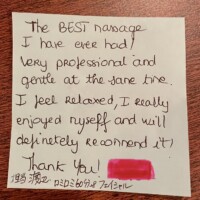 The BEST massage
I have ever had!
Very professional and
gentle at the same time.
I feel Relaxed, I really
enjoyed myself and will
definetely recomend it!
Thank You!
ロミロミ60分+フェイシャル